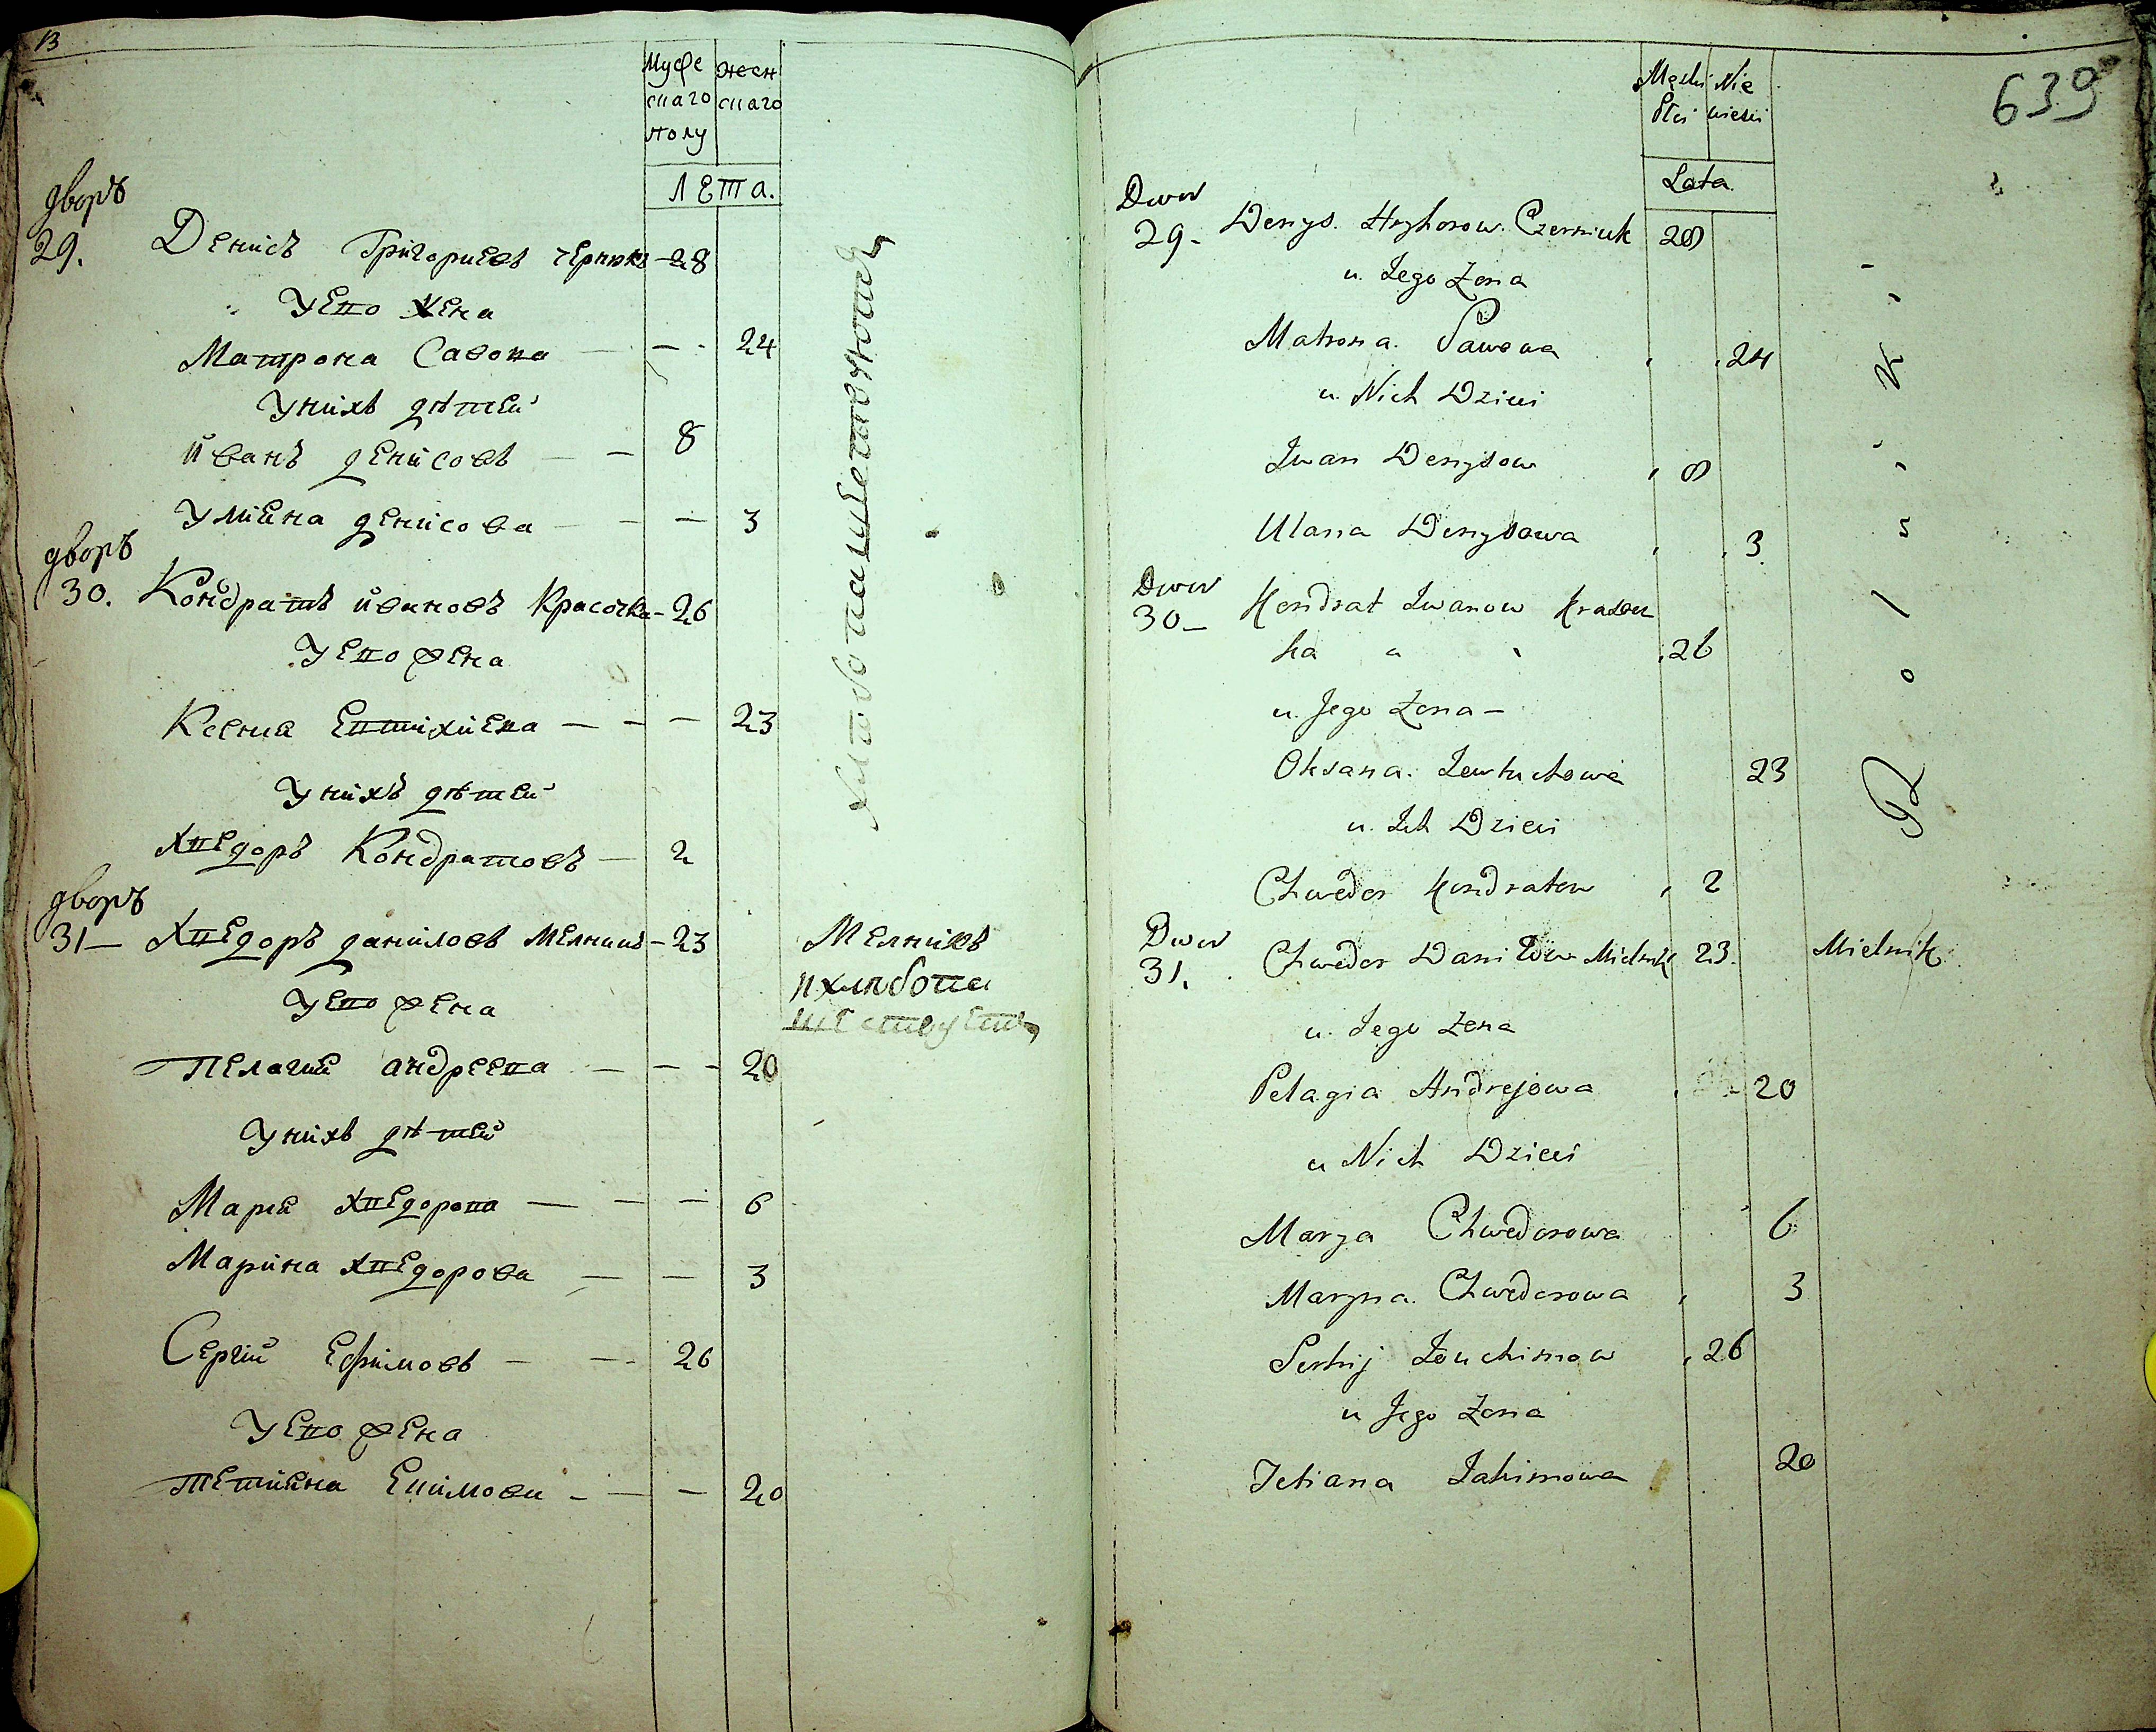 13
Муже женс
скаго скаго
полу
ЛЕта.
дворъ
29. Денисъ Григориевъ чернюкъ - 28
Уево жена
Матрона Савова - - 24
Унихъ дѣтей
иванъ денисовъ - - 8
Улияна денисова - - - 3
дворъ
30. Кондратъ ивановъ Красочка - 26
Уево жена
Ксения Евтихиева - - - 23
Унихъ дѣтей
Хведоръ Кондратовъ - 2
дворъ
31 - Хведоръ даниловъ Мелникъ - 23
Уево жена
Пелагия андреева - - - 20
Унихъ дѣтей
Мария Хведорова - - - 6
Марина Хведорова - - 3
Сергий Ефимовъ - - 26
Уево жена
Тетияна Екимова - - - 20
хлѣбопашествомъ
Мелникъ
и хлѣбопа
шествуетъ
639
Męski Nie
Płci wieści
Lata
Dwor
29 - Denys. Hryhorow. Czerniuk 28
u. Jego Zona
Matrona. Sawowa 24
u. Nich Dzieci
Iwan Denysow 8
Ulana Denysowa 3
Dwor
30 - Kondrat Iwanow Krasocz
ka 26
u. Jego Zona -
Oksana. Jewtuchowa 23
u. Ich Dzieci
Chwedor Kondratow 2
Dwor
31. Chwedor Daniłow Mielnik 23. Mielnik
u. Jego Zona
Pelagia Andrejowa 20
u Nich Dzieci
Marya Chwedorowa 6
Maryna. Chwedorowa 3
Serhij Jouchimow 26
u Jego Zona
Tetiana Jakimowa 20
Rolnik